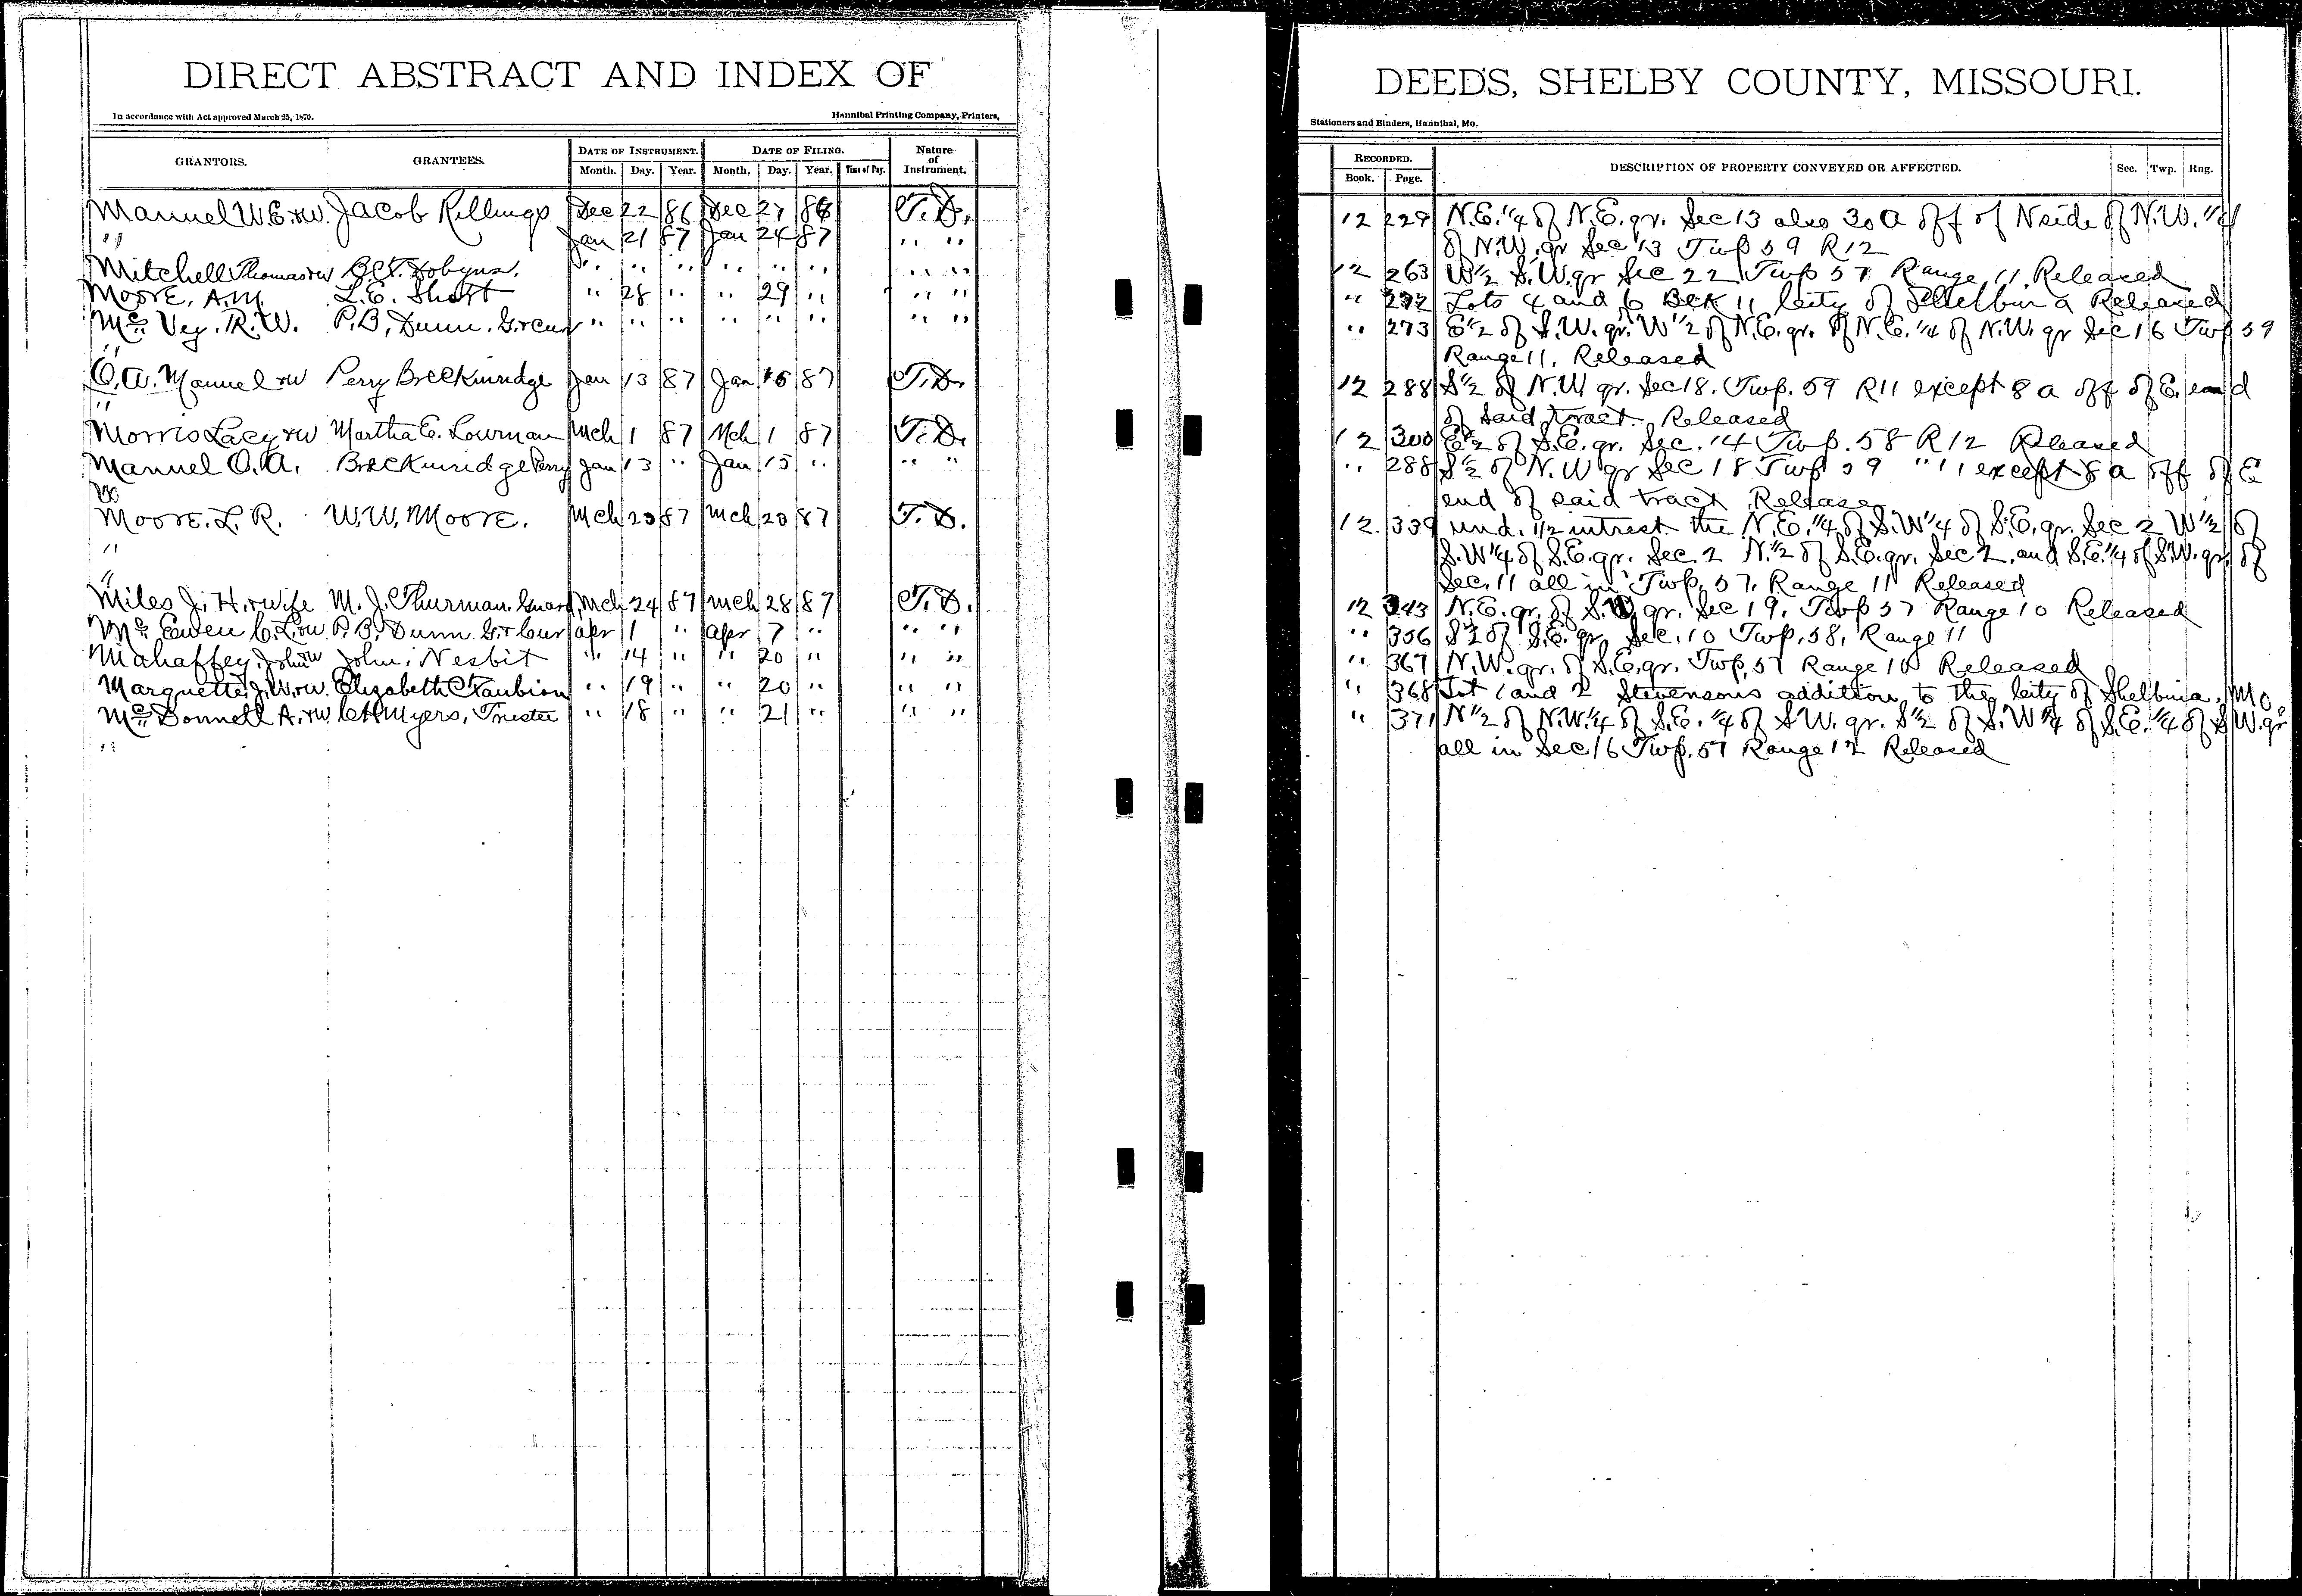 DIRECT ABSTRACT AND INDEX OF
In accordance with Act approved March 25, 1870.
Hannibal Printing Company, Printers,
GRANTORS. GRANTEES. DATE OF INSTRUMENT. DATE OF FILING. Nature of Instrument.
Month. Day. Year. Month. Day. Year. Time of Day.
Manuel W.E. & w. Jacob Rillings Dec 22 86 Dec 27 86 T.D.
" Jan 21 87 Jan 24 87 " "
Mitchell Thomas & w " " " " " " " "
Moore, A.M. L.E. Short " 28 " " 29 " " "
Mc Vey. R.W. P.B. Dunn. G. & Cur " " " " " " " "
"
O.A. Manuel & w Perry Breckinridge Jan 13 87 Jan 15 87 T.D.
"
Morris Lacy & w Martha E. Lowman Mch 1 87 Mch 1 87 T.D.
Manuel O.A. Breckinridge Perry Jan 13 " Jan 15 " " "
Moore. L.R. W.W. Moore. Mch 23 87 Mch 23 87 T.D.
"
"
Miles J.H. & wife M.J. Thurman. Guard. Mch 24 87 Mch 28 87 T.D.
Mc Ewen C.L. & w P.B. Dunn. G. & Cur Apr 1 " Apr 7 " " "
Mahaffey, John & w John, Nesbit " 14 " " 20 " " "
Marquette, J.W. & w. Elizabeth C Faubion " 19 " " 20 " " "
Mc Donnell A. & w C H Myers, Trustee " 18 " " 21 " " "
"
DEEDS, SHELBY COUNTY, MISSOURI.
Stationers and Binders, Hannibal, Mo.
RECORDED. DESCRIPTION OF PROPERTY CONVEYED OR AFFECTED. Sec. Twp. Rng.
Book. Page.
12 229 N.E. 1/4 of N.E. qr. Sec 13 also 30 a off of N side of N.W. 1/4
of N.W. qr Sec 13 Twp 59 R 12
12 263 W 1/2 S.W. qr Sec 22 Twp 57 Range 11. Released
" 272 Lots 4 and 6 Blk 11 City of Shelbina Released
" 273 E 1/2 of S.W. qr. W 1/2 of N.E. qr. & N.E. 1/4 of N.W. qr Sec 16 Twp 59
Range 11. Released
12 288 S 1/2 of N.W qr. Sec 18. Twp. 59 R 11 except 8 a off of E. end
of said tract. Released
12 300 E 1/2 of S.E. qr. Sec. 14 Twp. 58 R 12 Released
" 288 S 1/2 of N.W qr Sec 18 Twp 59 " 11 except 8 a off of E
end of said tract Release
12. 339 und. 1/2 intrest the N.E. 1/4 of S.W 1/4 of S.E. qr. Sec 2 W 1/2 of
S.W 1/4 of S.E. qr. Sec. 2 N. 1/2 of S.E. qr. Sec 2. and S.E. 1/4 of S.W. qr. of
Sec. 11 all in Twp. 57. Range 11 Released
12 343 N.E. qr. of S.W qr. Sec 19. Twp 57 Range 10 Released
" 356 S 1/2 of S.E. qr Sec. 10 Twp. 58, Range 11
" 367 N.W. qr. of S.E. qr. Twp. 57 Range 10 Released
" 368 Lot 1 and 2 Stevensons addition to the City of Shelbina, Mo.
" 371 N 1/2 of N.W. 1/4 of S.E. 1/4 of S.W. qr. S 1/2 of S.W 1/4 of S.E. 1/4 of S.W. qr
all in Sec 16 Twp. 57 Range 12 Released